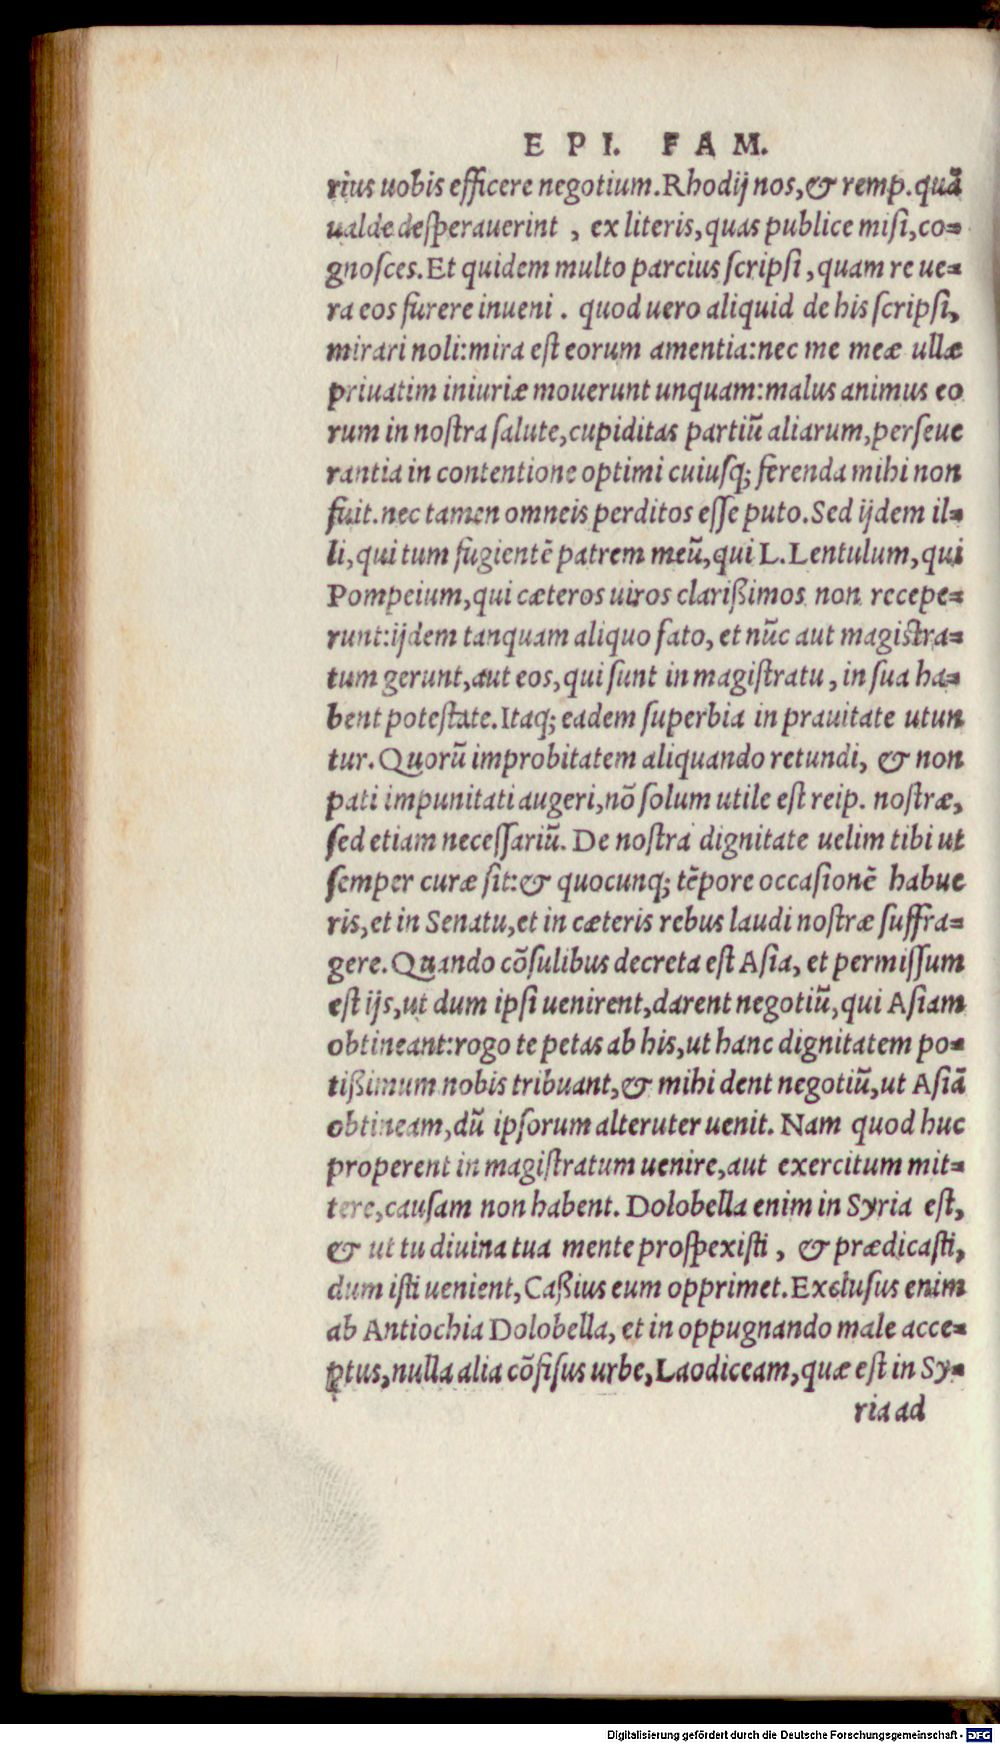 EPI. FAM.
rius uobis efficere negotium. Rhodij nos, & remp. quā
ualde desperauerint , ex literis, quas publice misi, co=
gnosces. Et quidem multo parcius scripsi, quam re ue=
ra eos furere inueni . quod uero aliquid de his scripsi,
mirari noli: mira est eorum amentia: nec me meæ ullæ
priuatim iniuriæ mouerunt unquam: malus animus eo
rum in nostra salute, cupiditas partiū aliarum, perseue
rantia in contentione optimi cuiusq; ferenda mihi non
fuit. nec tamen omneis perditos esse puto. Sed ijdem il=
li, qui tum fugientē patrem meū, qui L. Lentulum, qui
Pompeium, qui cæteros uiros clarißimos non recepe=
runt: ijdem tanquam aliquo fato, et nūc aut magistra=
tum gerunt, aut eos, qui sunt in magistratu, in sua ha=
bent potestate. Itaq; eadem superbia in prauitate utun
tur. Quorū improbitatem aliquando retundi, & non
pati impunitati augeri, nō solum utile est reip. nostræ,
sed etiam necessariū. De nostra dignitate uelim tibi ut
semper curæ sit: & quocunq; tēpore occasionē habue
ris, et in Senatu, et in cæteris rebus laudi nostræ suffra=
gere. Quando cōsulibus decreta est Asia, et permissum
est ijs, ut dum ipsi uenirent, darent negotiū, qui Asiam
obtineant: rogo te petas ab his, ut hanc dignitatem po=
tißimum nobis tribuant, & mihi dent negotiū, ut Asiā
obtineam, dū ipsorum alteruter uenit. Nam quod huc
properent in magistratum uenire, aut exercitum mit=
tere, causam non habent. Dolobella enim in Syria est,
& ut tu diuina tua mente prospexisti, & prædicasti,
dum isti uenient, Caßius eum opprimet. Exclusus enim
ab Antiochia Dolobella, et in oppugnando male acce=
ptus, nulla alia cōfisus urbe, Laodiceam, quæ est in Sy=
ria ad
Digitalisierung gefördert durch die Deutsche Forschungsgemeinschaft - DFG